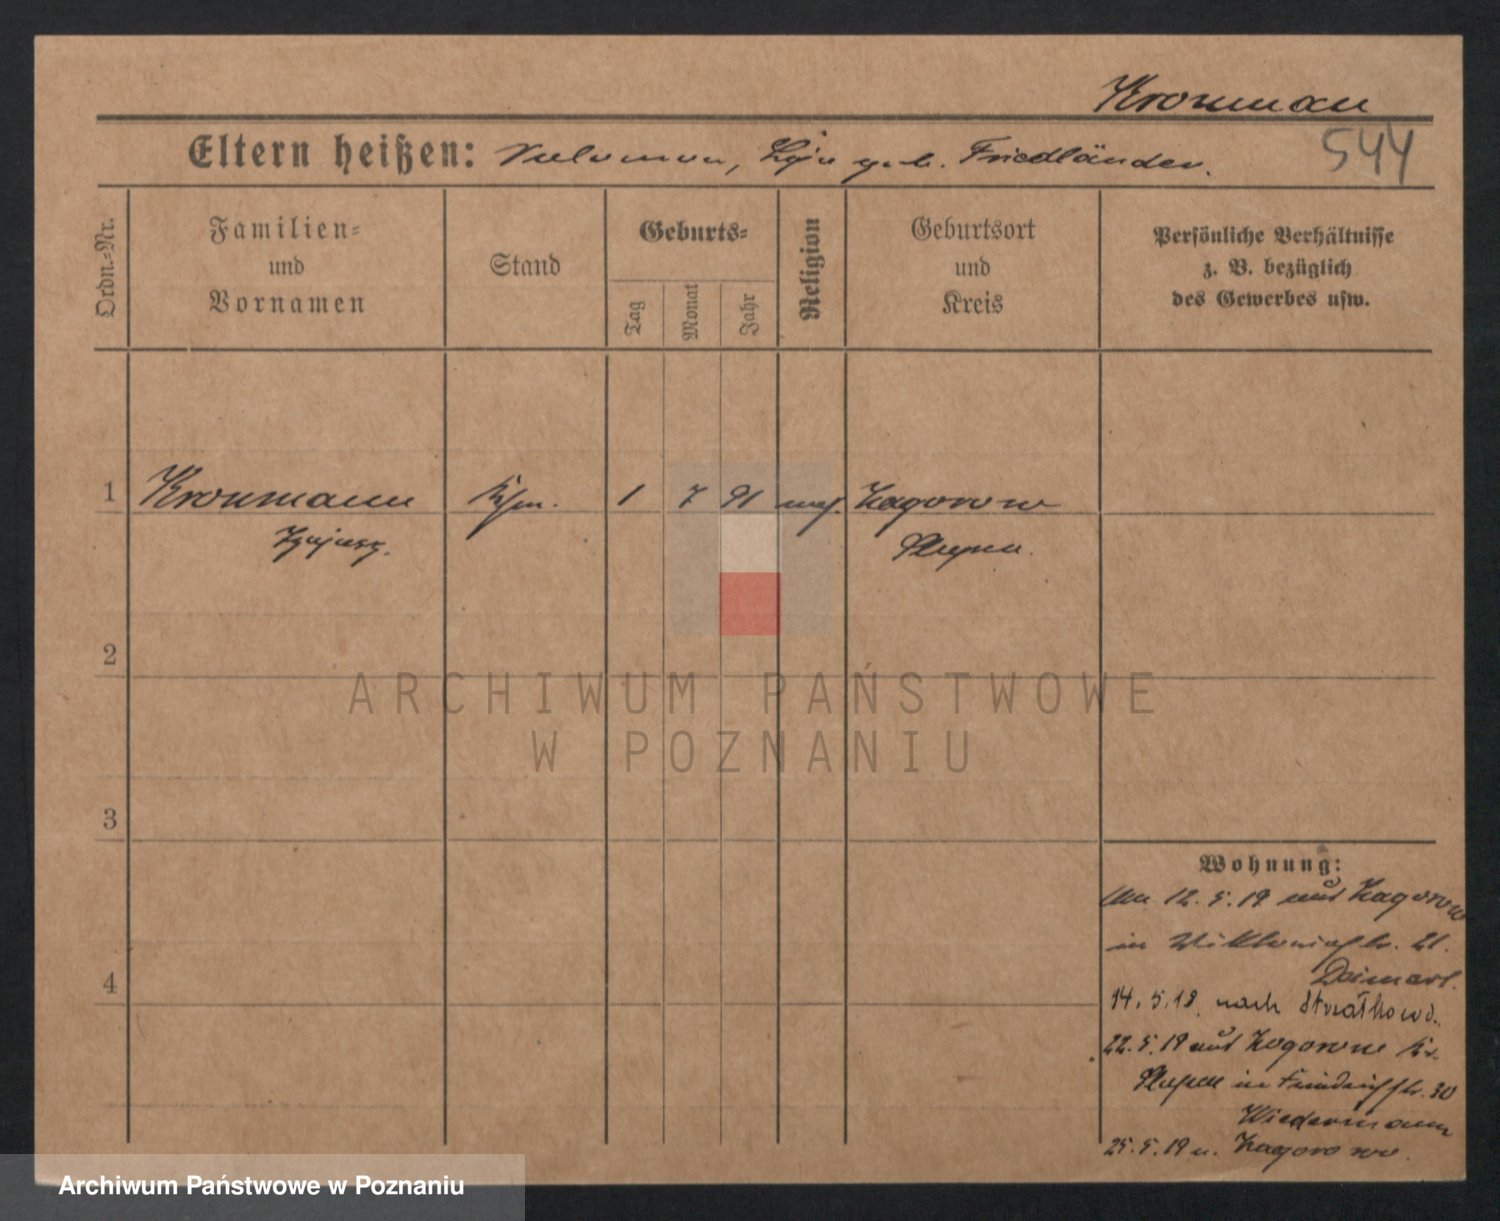 Kronman
544
Eltern heißen: Salomon, geb. Friedländer.
Ordn.-Nr.
Familien-
und
Vornamen
Stand
Geburts-
Tag
Monat
Jahr
Religion
Geburtsort
und
Kreis
Persönliche Verhältnisse
z. B. bezüglich
des Gewerbes usw.
1 Kronmann Kfm. 1 7 91 mos. Zagorow
Slupca.
2
3
4
Wohnung:
Am 12.5.19 aus Zagorow
in Viktoriastr. 21.
14.5.19. nach Strzałkowo.
22.5.19 aus Zagorow Kr.
Slupca in Friedrichstr. 30
Wiedermann
25.5.19 n. Zagorow.
ARCHIWUM PAŃSTWOWE
W POZNANIU
Archiwum Państwowe w Poznaniu